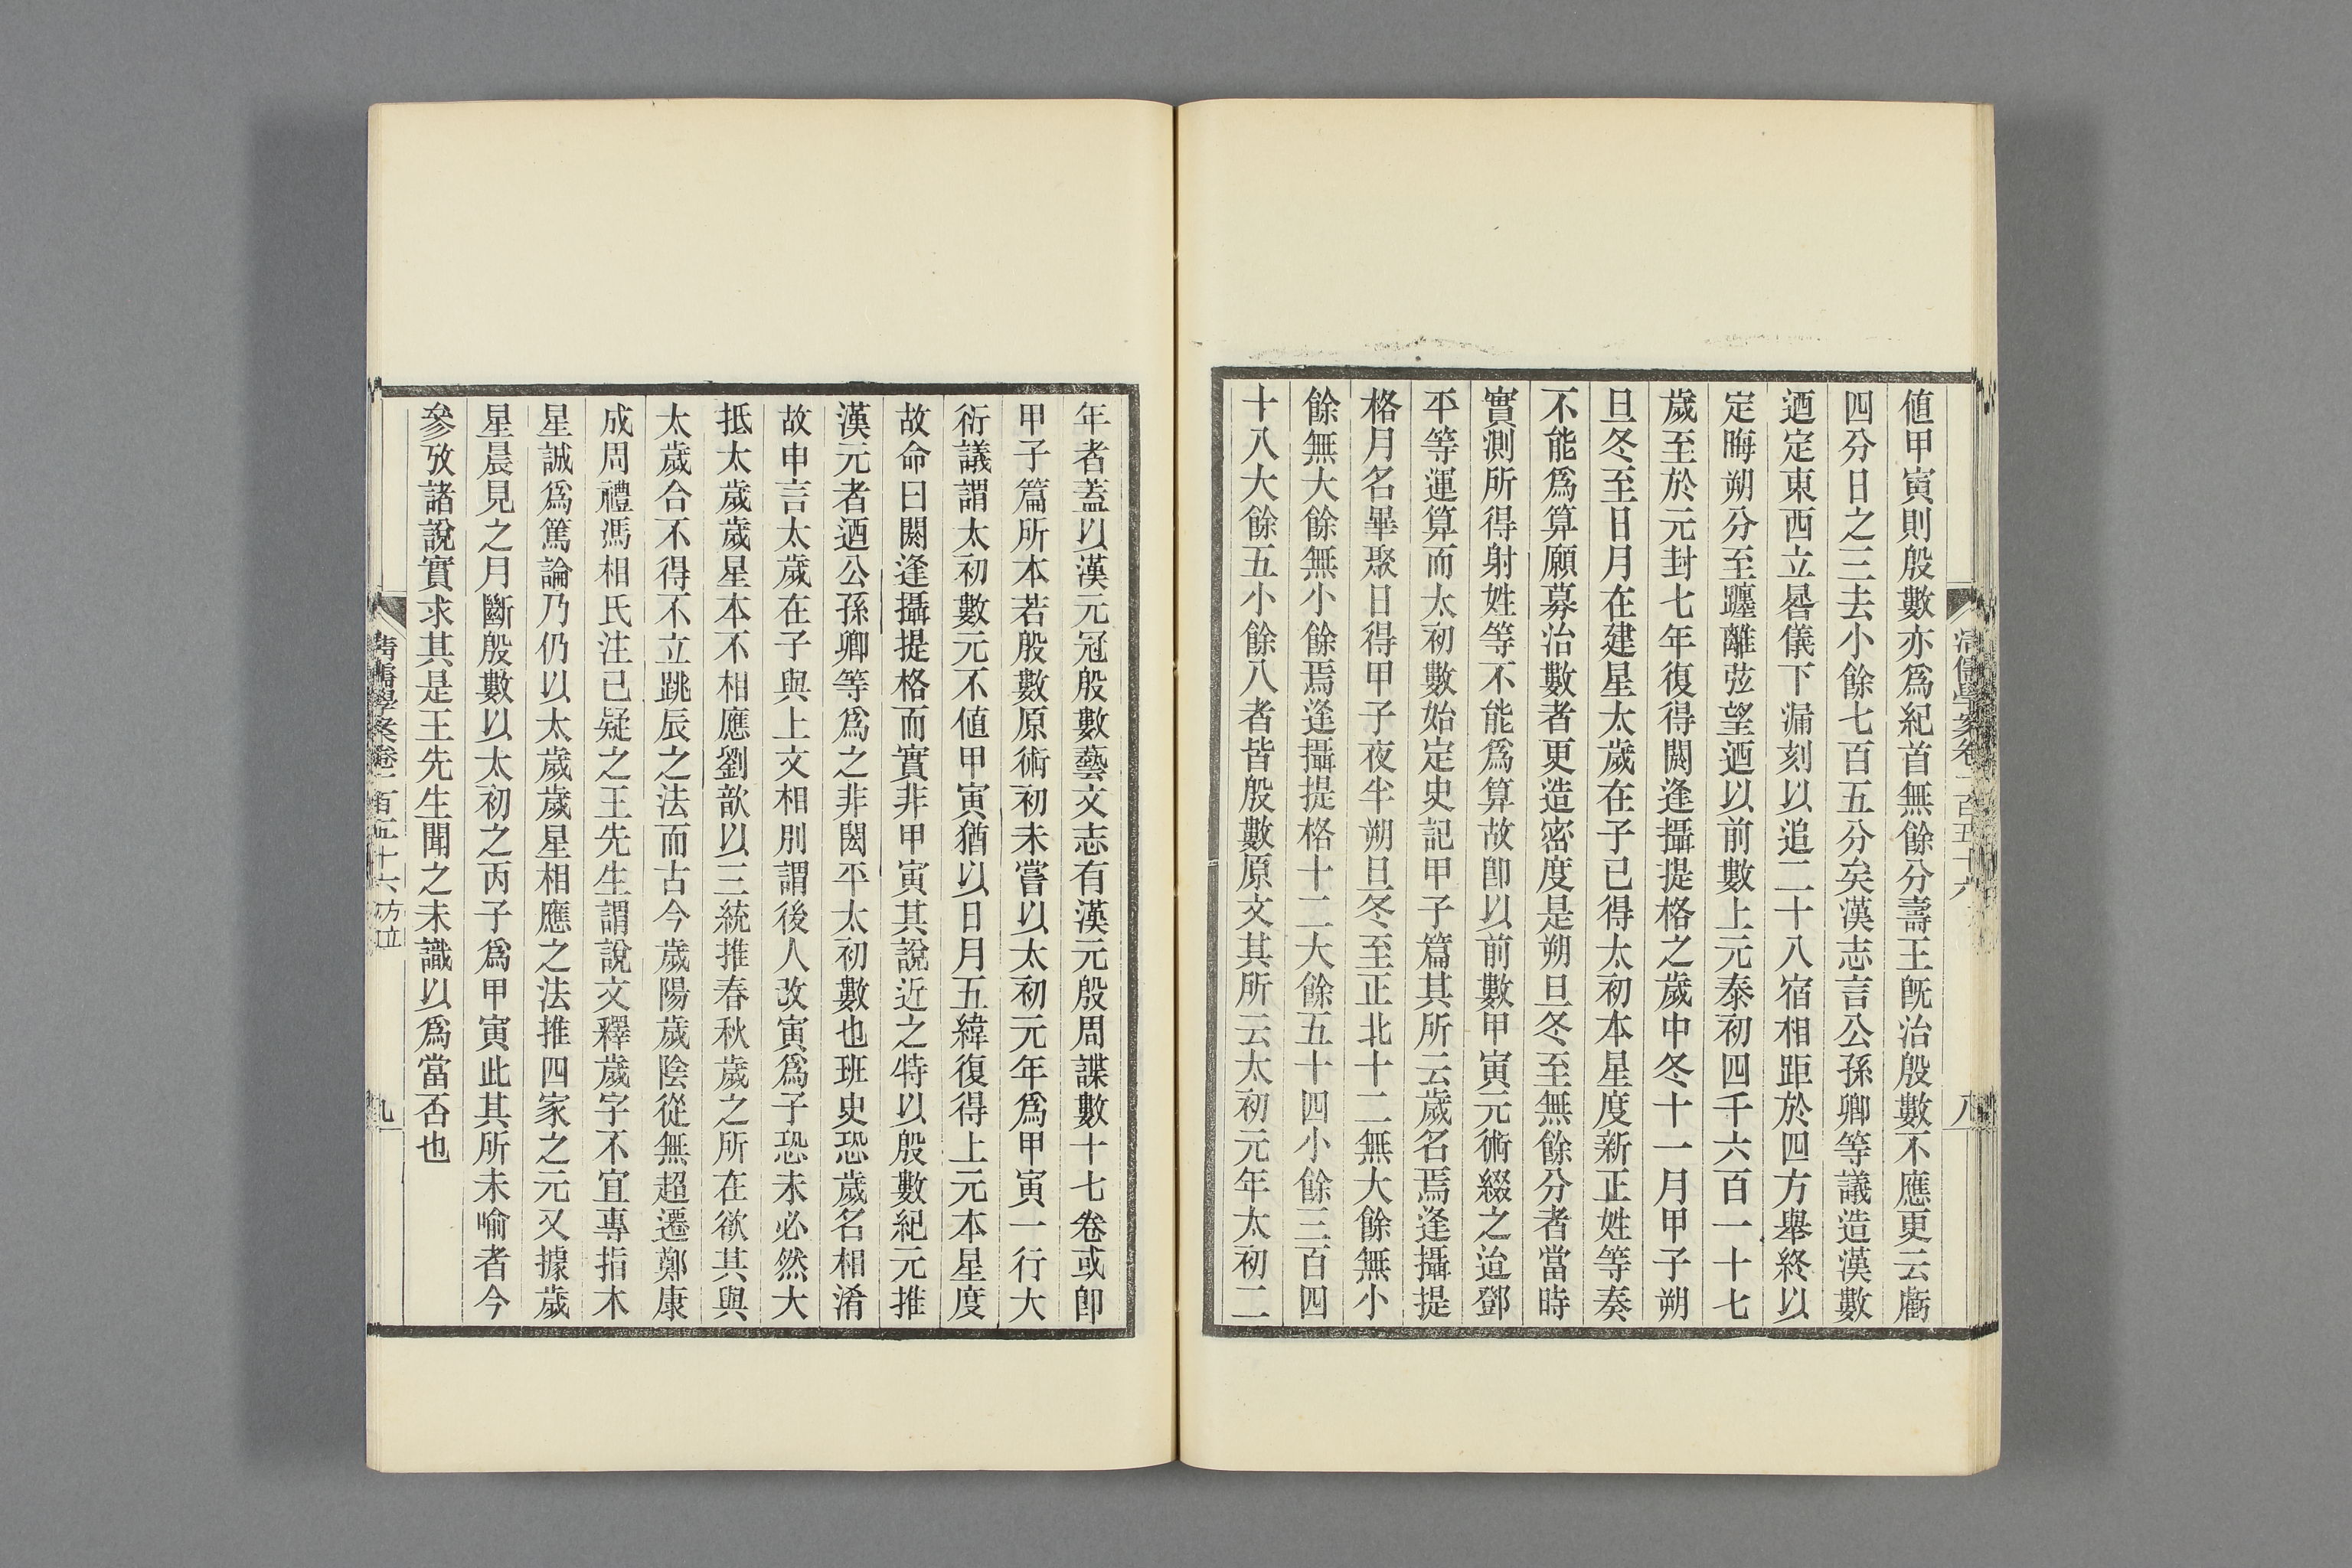 清儒學案卷一百五十六
八
値甲寅則殷數亦爲紀首無餘分壽王旣治殷數不應更云虧
四分日之三去小餘七百五分矣漢志言公孫卿等議造漢數
迺定東西立晷儀下漏刻以追二十八宿相距於四方舉終以
定晦朔分至躔離弦望迺以前數上元泰初四千六百一十七
歲至於元封七年復得閼逢攝提格之歲中冬十一月甲子朔
旦冬至日月在建星太歲在子已得太初本星度新正姓等奏
不能爲算願募治數者更造密度是朔旦冬至無餘分者當時
實測所得射姓等不能爲算故卽以前數甲寅元術綴之迨鄧
平等運算而太初數始定史記甲子篇其所云歲名焉逢攝提
格月名畢聚日得甲子夜半朔旦冬至正北十二無大餘無小
餘無大餘無小餘焉逢攝提格十二大餘五十四小餘三百四
十八大餘五小餘八者皆殷數原文其所云太初元年太初二
年者蓋以漢元冠殷數藝文志有漢元殷周諜數十七卷或卽
甲子篇所本若殷數原術初未嘗以太初元年爲甲寅一行大
衍議謂太初數元不値甲寅猶以日月五緯復得上元本星度
故命曰閼逢攝提格而實非甲寅其說近之特以殷數紀元推
漢元者迺公孫卿等爲之非閎平太初數也班史恐歲名相淆
故申言太歲在子與上文相別謂後人改寅爲子恐未必然大
抵太歲歲星本不相應劉歆以三統推春秋歲之所在欲其與
太歲合不得不立跳辰之法而古今歲陽歲陰從無超遷鄭康
成周禮馮相氏注已疑之王先生謂說文釋歲字不宜專指木
星誠爲篤論乃仍以太歲歲星相應之法推四家之元又據歲
星晨見之月斷殷數以太初之丙子爲甲寅此其所未喻者今
參攷諸說實求其是王先生聞之未識以爲當否也
清儒學案卷一百五十六 方立
九